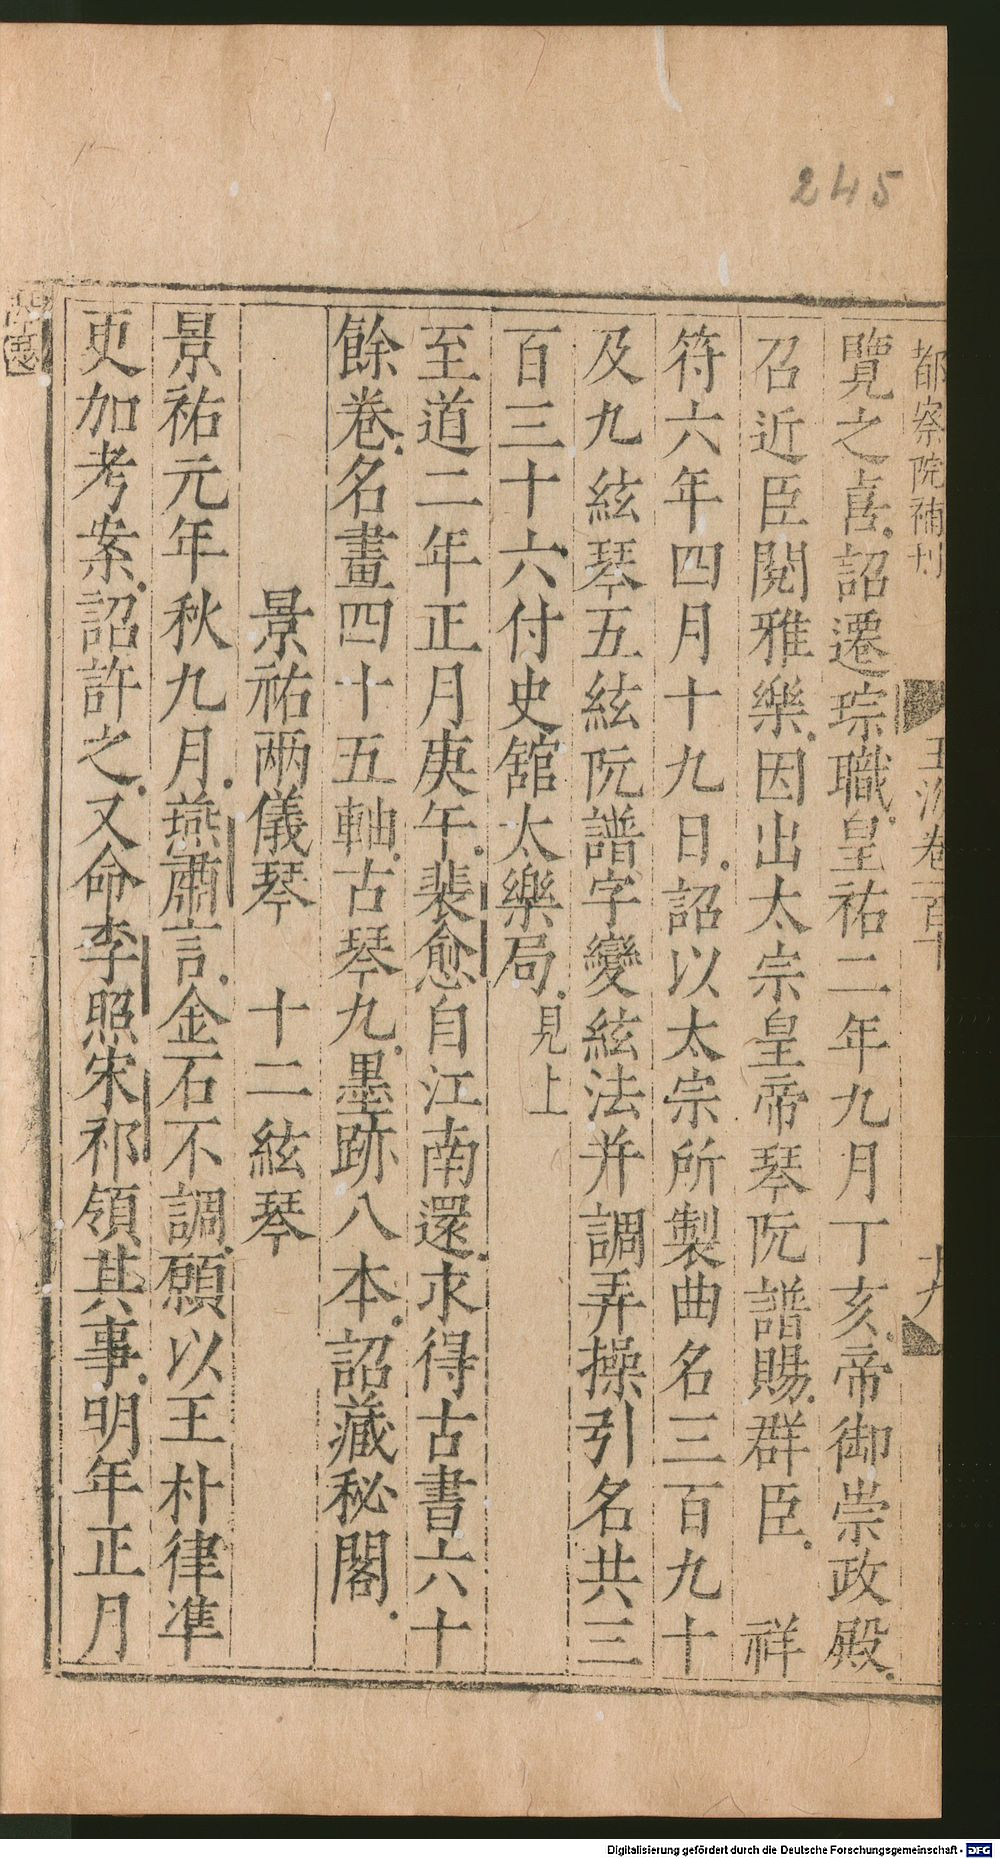 245
都察院補刊
玉海卷一百十
十九
覽之喜詔遷琮職皇祐二年九月丁亥帝御崇政殿
召近臣閱雅樂因出太宗皇帝琴阮譜賜群臣　祥
符六年四月十九日詔以太宗所製曲名三百九十
及九絃琴五絃阮譜字變絃法并調弄操引名共三
百三十六付史舘太樂局見上
至道二年正月庚午裴愈自江南還求得古書六十
餘卷名畫四十五軸古琴九墨跡八本詔藏秘閣
景祐兩儀琴　十二絃琴
景祐元年秋九月燕肅言金石不調願以王朴律凖
更加考案詔許之又命李照宋祁領其事明年正月
Digitalisierung gefördert durch die Deutsche Forschungsgemeinschaft - DFG